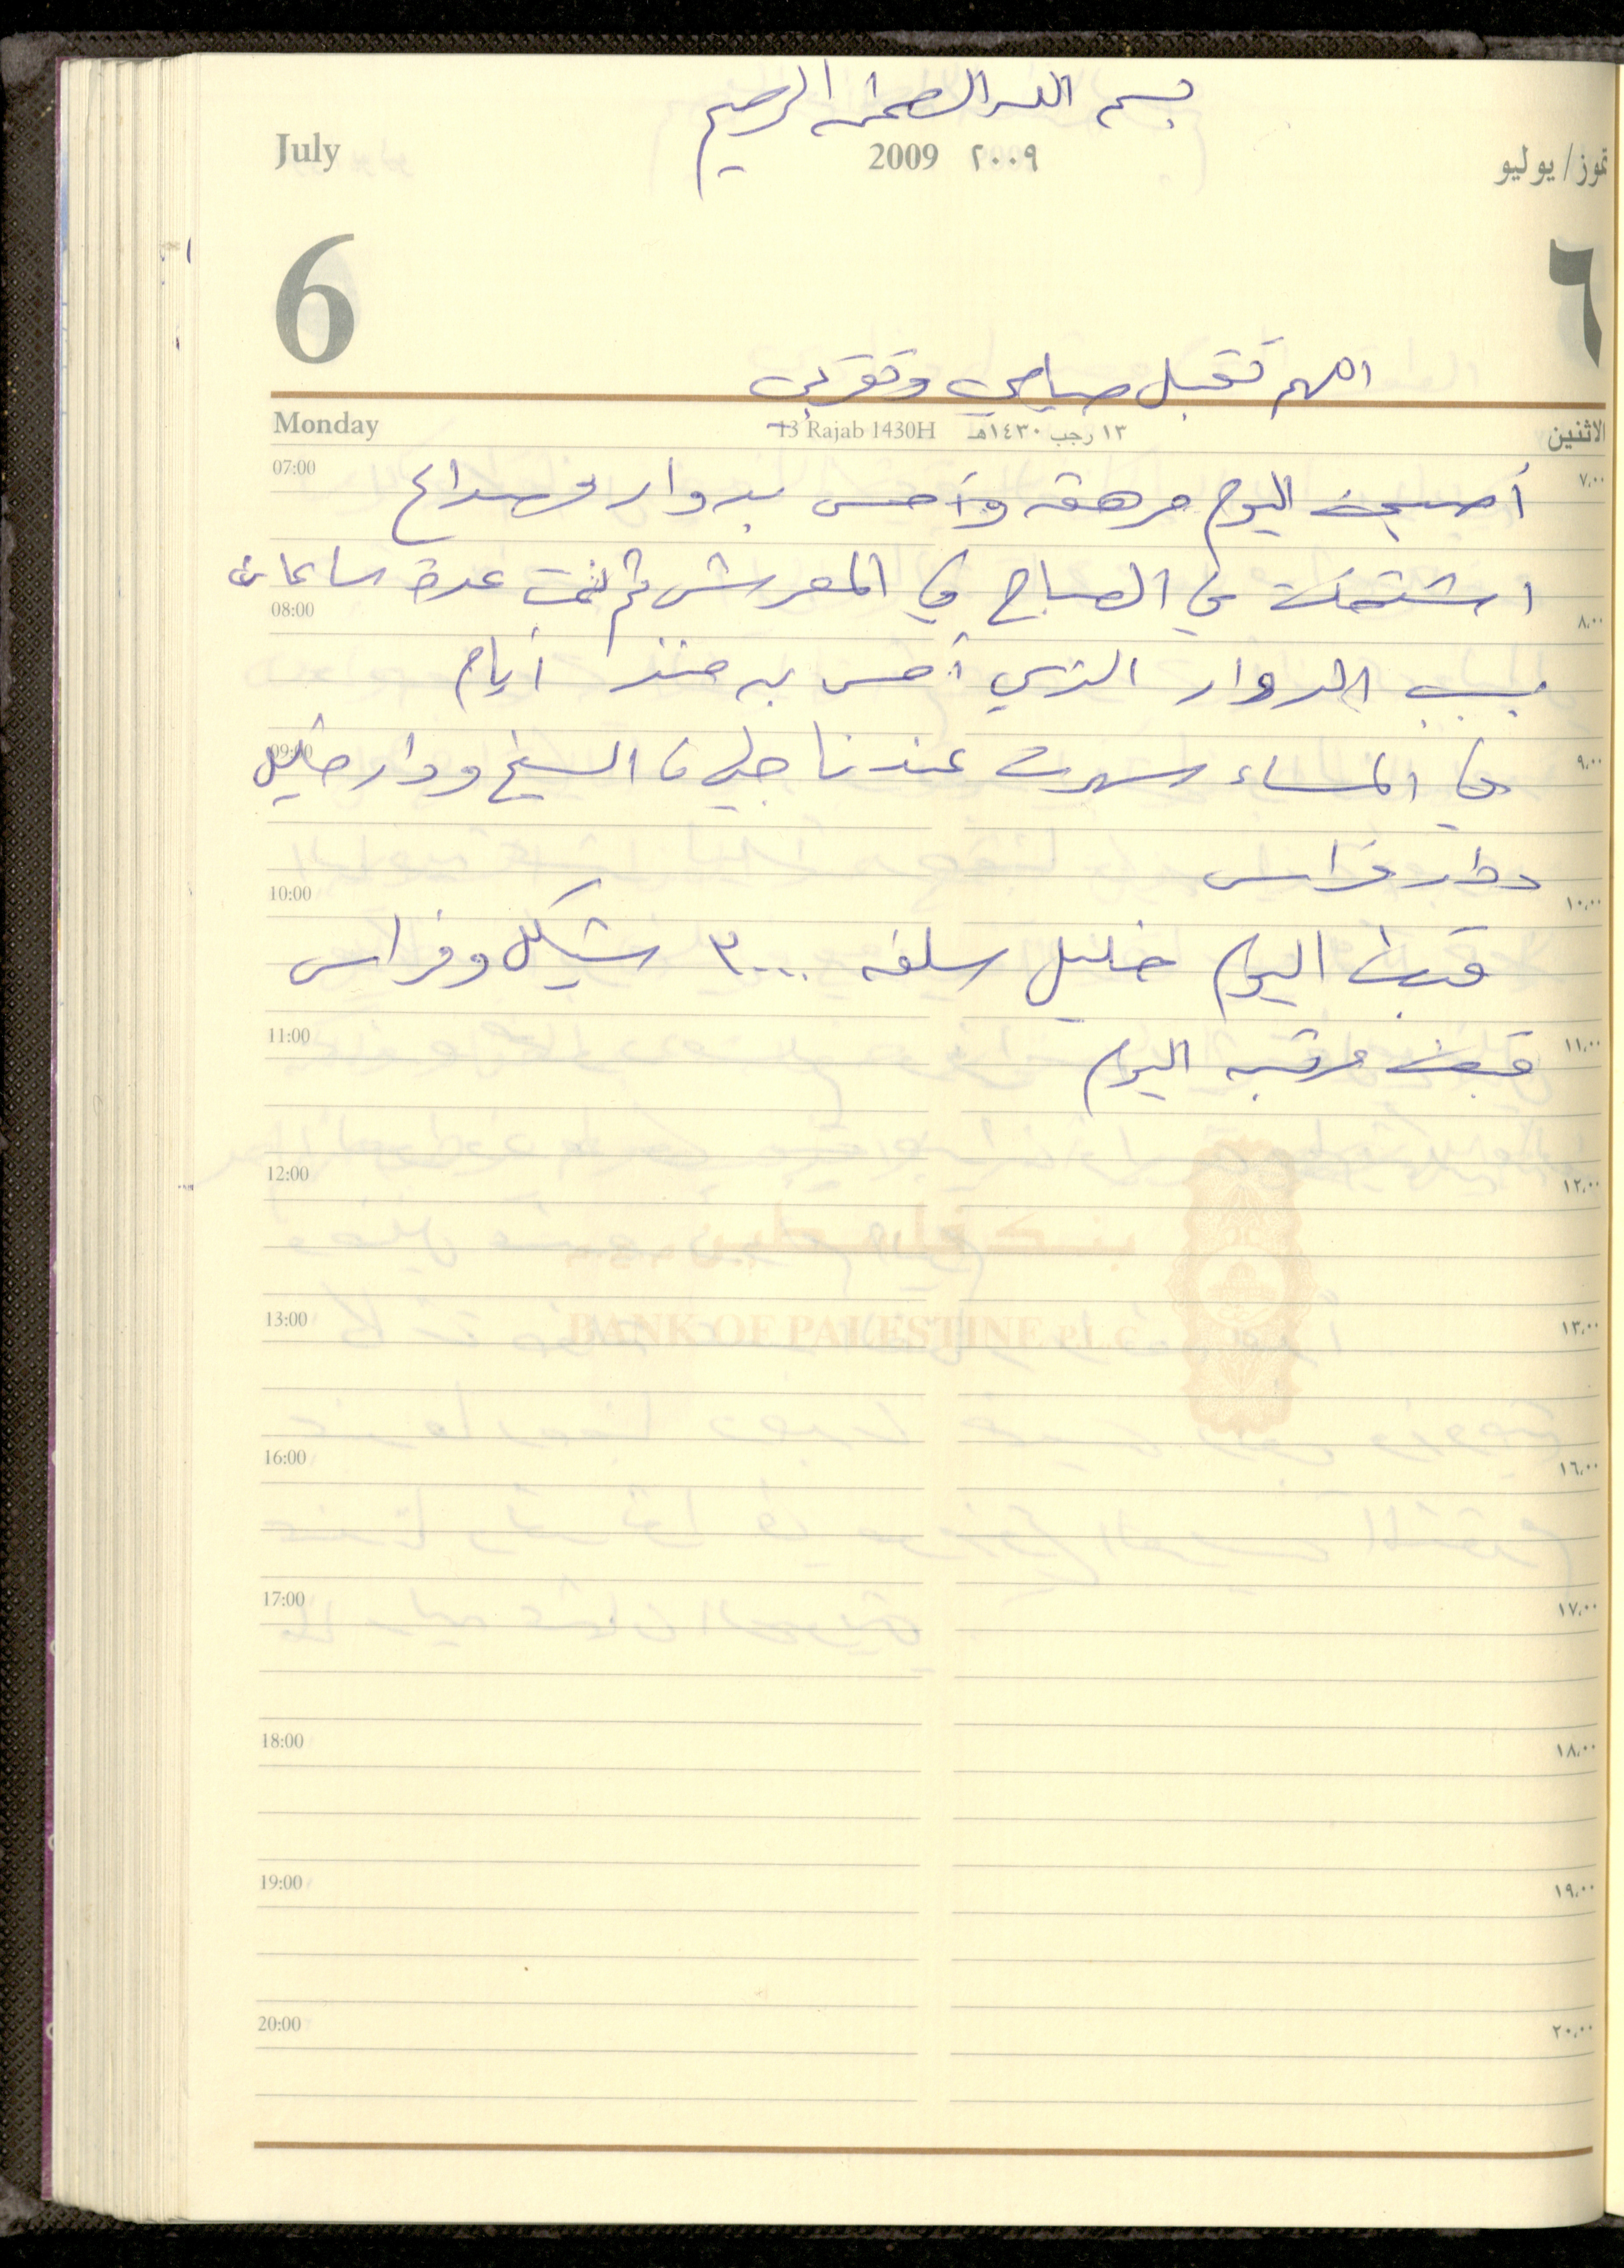 بسم الله الرحمن الرحيم
July 2009 ٢٠٠٩ تموز/يوليو
6 ٦
اللهم تقبل صيامي وتقربي
Monday 13 Rajab 1430H ١٣ رجب ١٤٣٠هـ الاثنين
07:00 ٧,٠٠
أصبحت اليوم مرهقة وأحس بدوار وصداع
اشتغلت في الصباح في المعرش ثم نمت عدة ساعات
08:00 ٨,٠٠
بسبب الدوار الذي أحس به منذ أيام
09:00 ٩,٠٠
في المساء سهرت عندنا جيهان الشيخ ودار خليل
ودار فراس
10:00 ١٠,٠٠
قبض اليوم خليل سلفه ٣٠٠٠ شيكل وفراس
11:00 ١١,٠٠
قبض مرتبه اليوم
12:00 ١٢,٠٠
بنك فلسطين
13:00 ١٣,٠٠
BANK OF PALESTINE P.L.C
16:00 ١٦,٠٠
17:00 ١٧,٠٠
18:00 ١٨,٠٠
19:00 ١٩,٠٠
20:00 ٢٠,٠٠